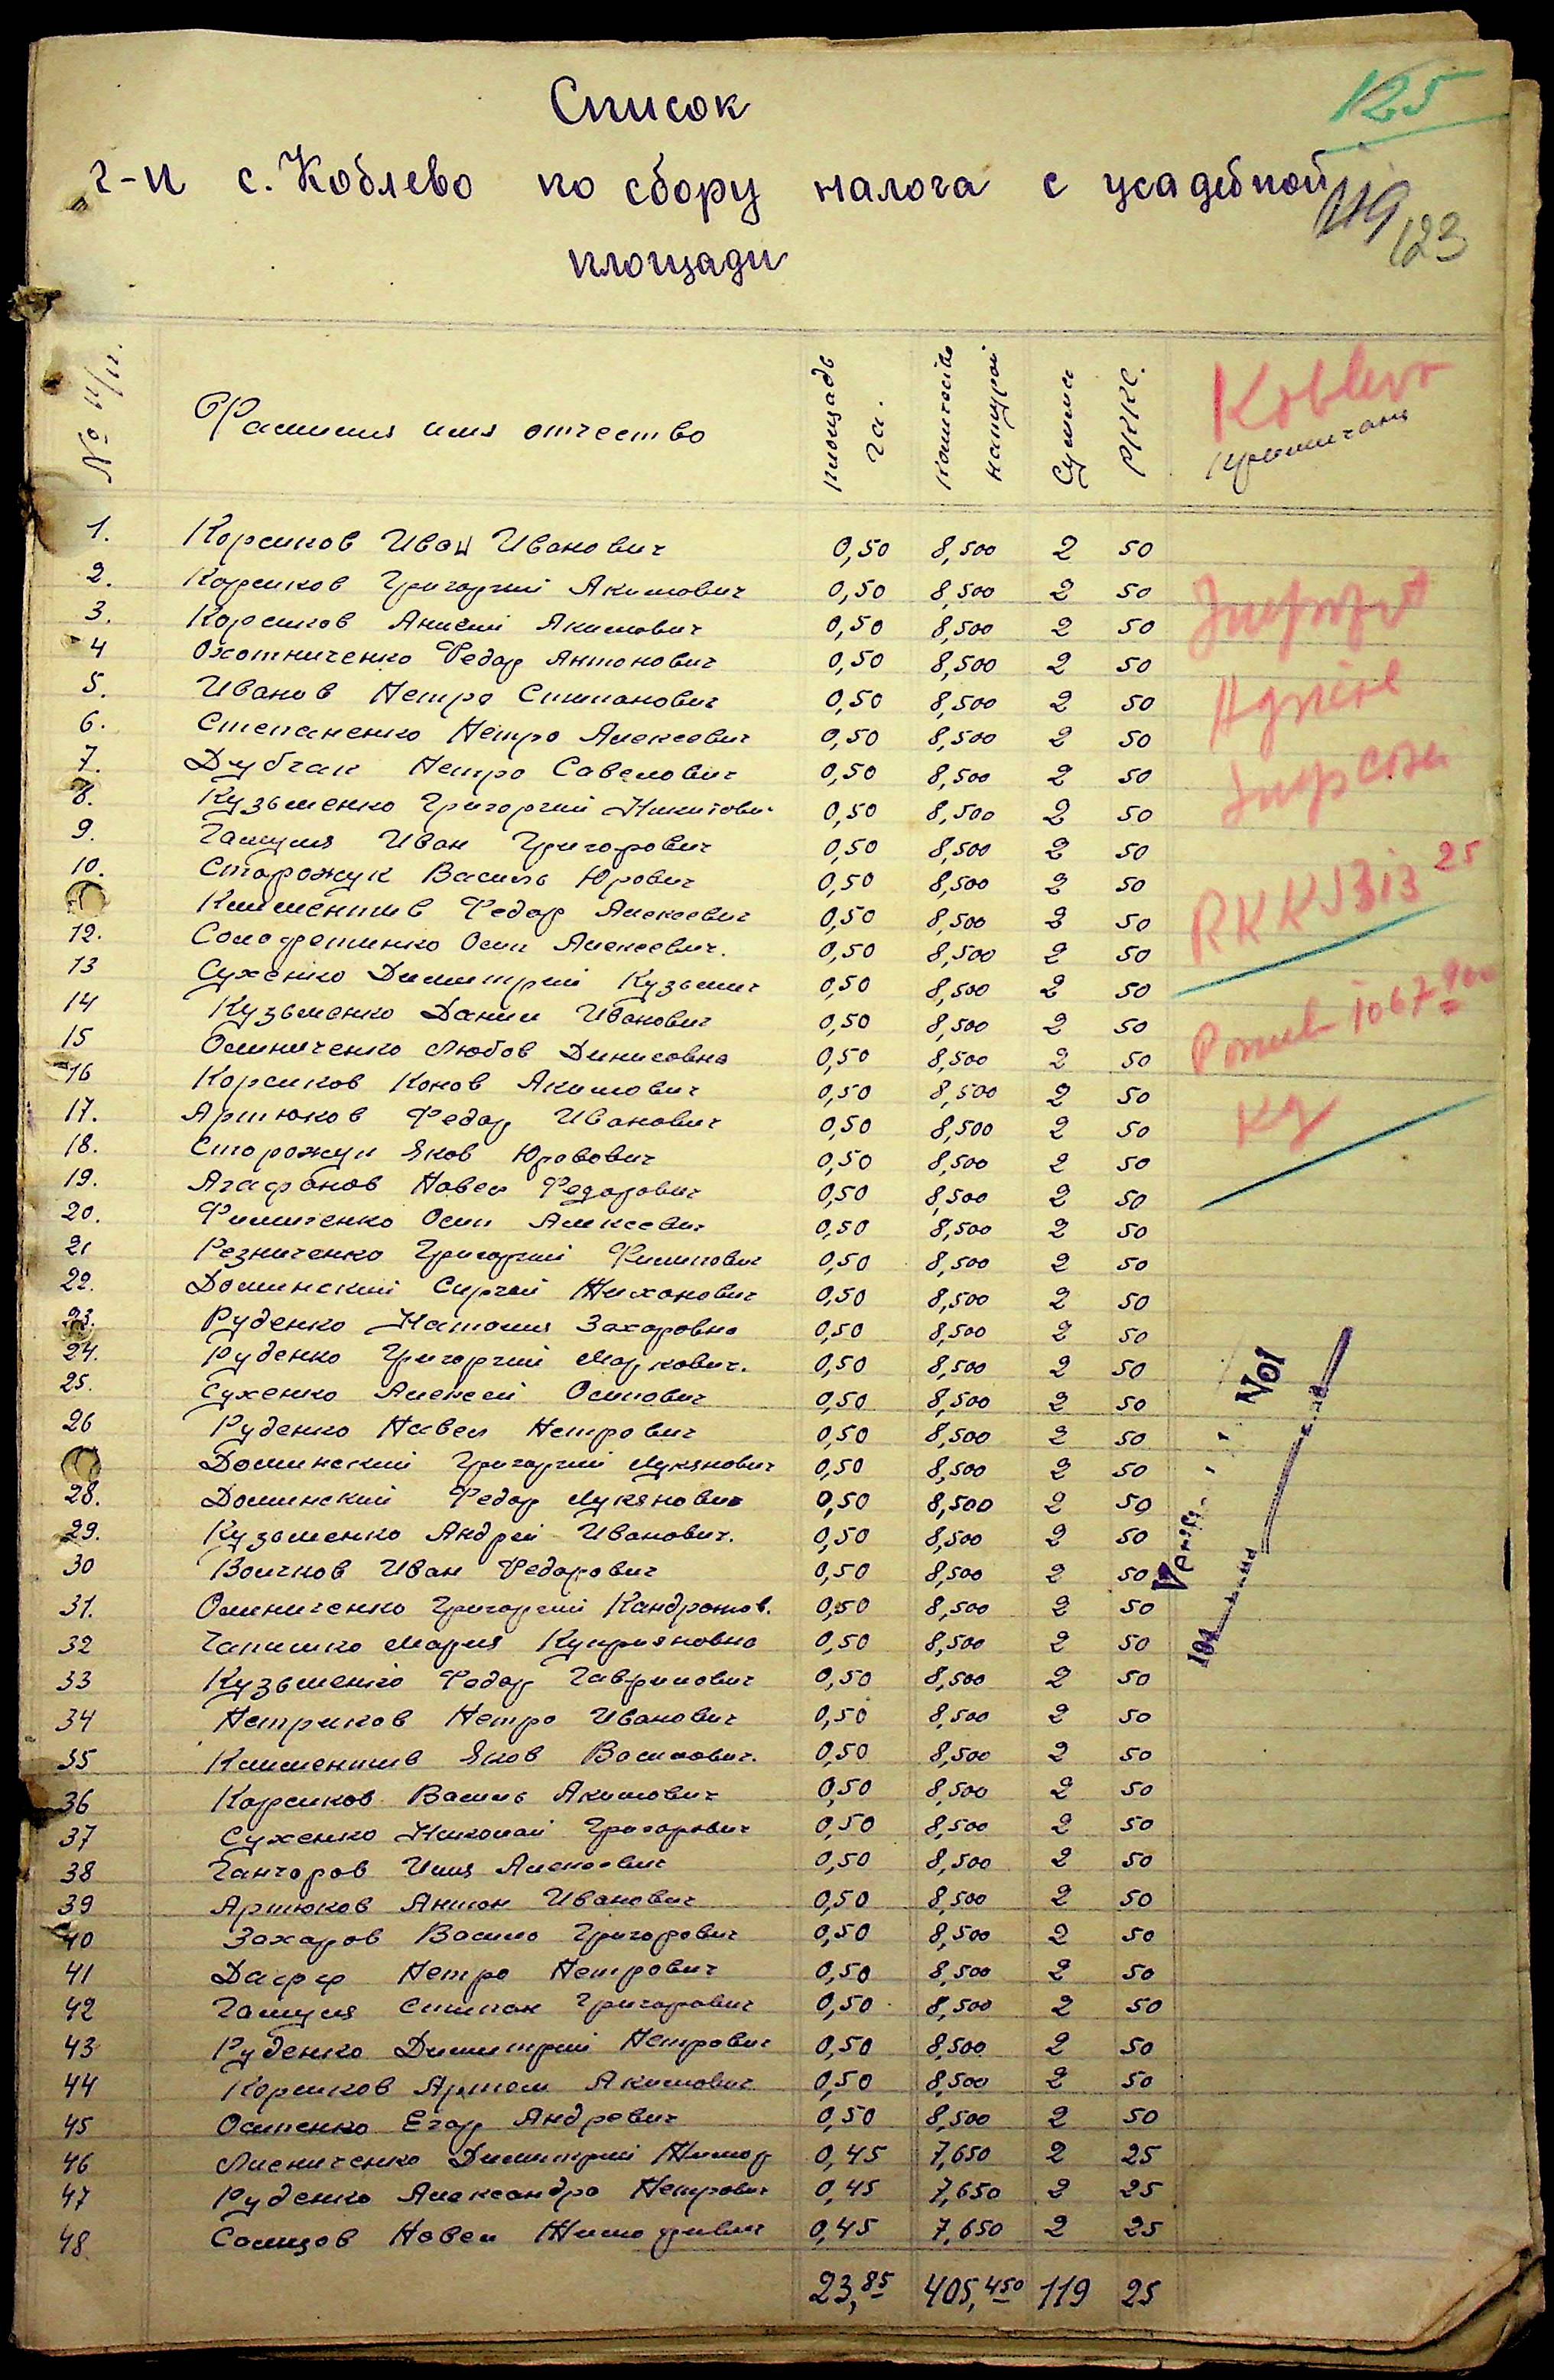 125
Список
г-н с. Коблево по сбору налога с усадебной
119
123
площади
№ п/п.
Фамилия имя отчество
площадь га.
количество натурой
Сумма
РККС.
Koblevo
1. Корсиков Иван Иванович 0,50 8,500 2 50
2. Корсиков Григорий Акимович 0,50 8,500 2 50
3. Корсиков Анисий Акимович 0,50 8,500 2 50
4 Охотниченко Федор Антонович 0,50 8,500 2 50
5. Иванов Петро Стипанович 0,50 8,500 2 50
6. Степаненко Петро Алексеевич 0,50 8,500 2 50
7. Дубчак Петро Савелович 0,50 8,500 2 50
8. Кузьменко Григорий Никитович 0,50 8,500 2 50
9. Галущя Иван Григорович 0,50 8,500 2 50
10. Сторожук Василь Юрович 0,50 8,500 2 50
Климентив Федор Алексеевич 0,50 8,500 2 50
12. Солофетинко Осип Алексеевич. 0,50 8,500 2 50
13 Сухенко Димитрий Кузьмич 0,50 8,500 2 50
14 Кузьменко Данил Иванович 0,50 8,500 2 50
15 Олиниченко Любов Динисовна 0,50 8,500 2 50
16 Корсиков Конов Акимович 0,50 8,500 2 50
17. Артюков Федор Иванович 0,50 8,500 2 50
18. Сторожук Яков Юрович 0,50 8,500 2 50
19. Агафонов Павел Федорович 0,50 8,500 2 50
20. Филиченко Осип Алексеевич 0,50 8,500 2 50
21 Резниченко Григорий Филипович 0,50 8,500 2 50
22. Долинский Сиргей Тиханович 0,50 8,500 2 50
23. Руденко Наталия Захаровна 0,50 8,500 2 50
24. Руденко Григорий Маркович. 0,50 8,500 2 50
25. Сухенко Алексей Осипович 0,50 8,500 2 50
26 Руденко Павел Петрович 0,50 8,500 2 50
Долинский Григорий Лукянович 0,50 8,500 2 50
28. Долинский Федор Лукянович 0,50 8,500 2 50
29. Кузьменко Андрей Иванович. 0,50 8,500 2 50
30 Волчков Иван Федорович 0,50 8,500 2 50
31. Олиниченко Григорий Кандратов. 0,50 8,500 2 50
32 Чапишко Мария Куприяновна 0,50 8,500 2 50
33 Кузьменко Федор Гаврилович 0,50 8,500 2 50
34 Петриков Петро Иванович 0,50 8,500 2 50
35 Климентив Яков Василович. 0,50 8,500 2 50
36 Корсиков Василь Акимович 0,50 8,500 2 50
37 Сухенко Николай Григорович 0,50 8,500 2 50
38 Ганчоров Илия Алексеевич 0,50 8,500 2 50
39 Артюков Антон Иванович 0,50 8,500 2 50
40 Захаров Василь Григорович 0,50 8,500 2 50
41 Дафф Петро Петрович 0,50 8,500 2 50
42 Галущя Стипан Григорович 0,50 8,500 2 50
43 Руденко Димитрий Петрович 0,50 8,500 2 50
44 Корсиков Артом Акимович 0,50 8,500 2 50
45 Остенко Егор Андревич 0,50 8,500 2 50
46 Лисниченко Димитрий Тимоф 0,45 7,650 2 25
47 Руденко Александра Петрович 0,45 7,650 2 25
48 Солицов Павел Тимофивич 0,45 7,650 2 25
23,85 405,450 119 25
Agricol
RKKS 313 25
Porumb 1067 900
Kg
No1
194